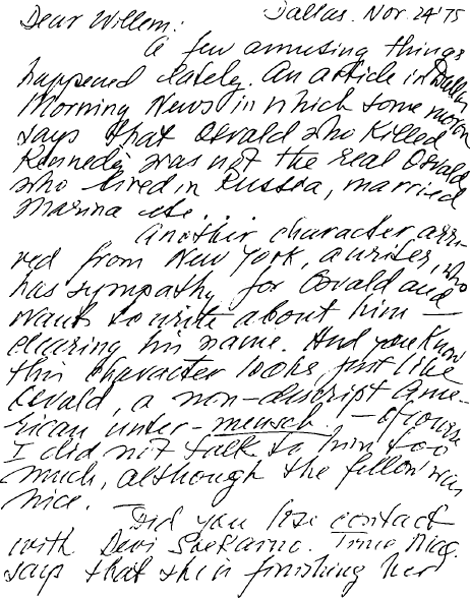 Dallas. Nov. 24 '75
Dear Willem:
A few amusing things
happened lately. An article in Dallas
Morning News in which some moron
says that Osvald who killed
Kennedy was not the real Osvald
who lived in Russia, married
Marina etc...
Another character arri-
ved from New York, a writer, who
has sympathy for Osvald and
wants to write about him —
clearing his name. And you know
this character looks just like
Osvald, a non-descript Ame-
rican unter-mensch. — Of course
I did not talk to him too
much, although the fellow was
nice. —
Did you lose contact
with Dewi Soekarno. Time Mag.
says that she is finishing her